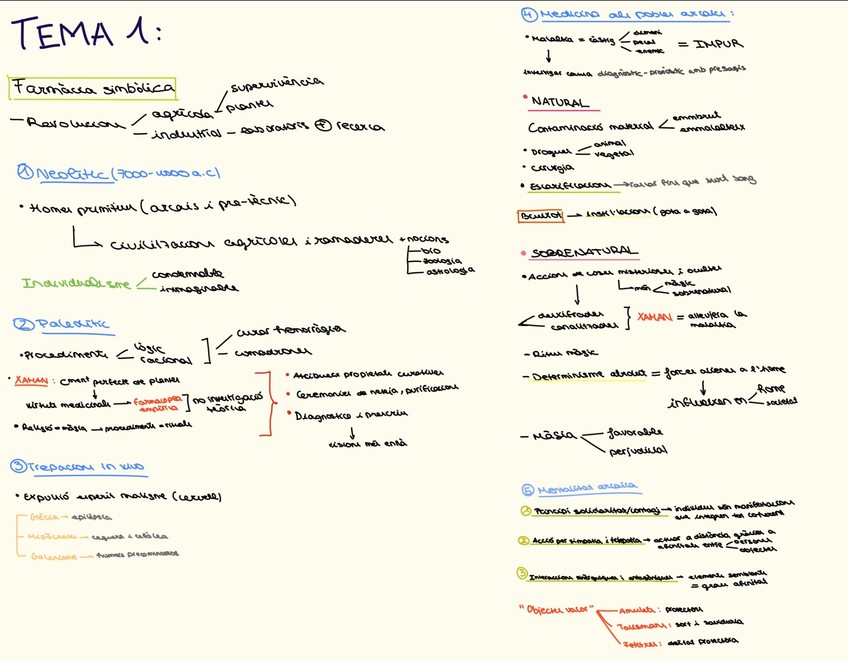 TEMA 1:
Farmàcia simbòlica
supervivència
agrícola
plantes
— Revolucions
industrial — laboratoris ⊕ recerca
① Neolític (7000-4000 a.C)
• Homes primitius (arcais i pre-tècnic)
civilitzacions agrícoles i ramaderes + nocions
bio
zoologia
astrologia
Individualisme
condemnable
inimaginable
② Paleolític
curar hemorràgia
• Procediments
lògic
racional
comadrones
• XAMAN: perfecte de plantes
virtuts medicinals → Farmacopea empírica
no investigació teòrica
• Religió = màgia → procediments = rituals
• propietats curatives
• Cerimonies de neteja, purificacions
• Diagnostica i prescriu
visions més enllà
③ Trepacions in vivo
• Expulsió esperit maligne (cervell)
Grècia → epilèpsia
ceguera i cefalea
Galenisme → humors
④ Medicina dels pobles arcaics:
• Malaltia = càstig
dimoni
pecat
enemic
= IMPUR
investigar causa diagnòstic - pronòstic amb presagis
• NATURAL
Contaminació material
embrut
emmalalteix
• Drogues
animal
vegetal
• Cirurgia
• Escarificacions → tallar fins que surt sang
instil·lacions (gota a gota)
• SOBRENATURAL
• Accions de coses misterioses i ocultes
món
màgic
sobrenatural
desxifrades
canalitzades
XAMAN = alleujera la malaltia
— Ritus màgic
— Determinisme absolut = forces alienes a l'home
influeixen en
home
societat
— Màgia
favorable
perjudicial
⑤ Mentalitat arcaica
① Principi solidaritat/contagi → individus són manifestacions que integren tot coherent
② Acció per simpatia i telepatia → actuar a distància gràcies a afinitats entre
persones
objectes
③ Interaccions i → elements semblants
= grau afinitat
"Objectes valor"
Amulets: protectors
Talismans: sort i saviduria
Fetitxes: protectora